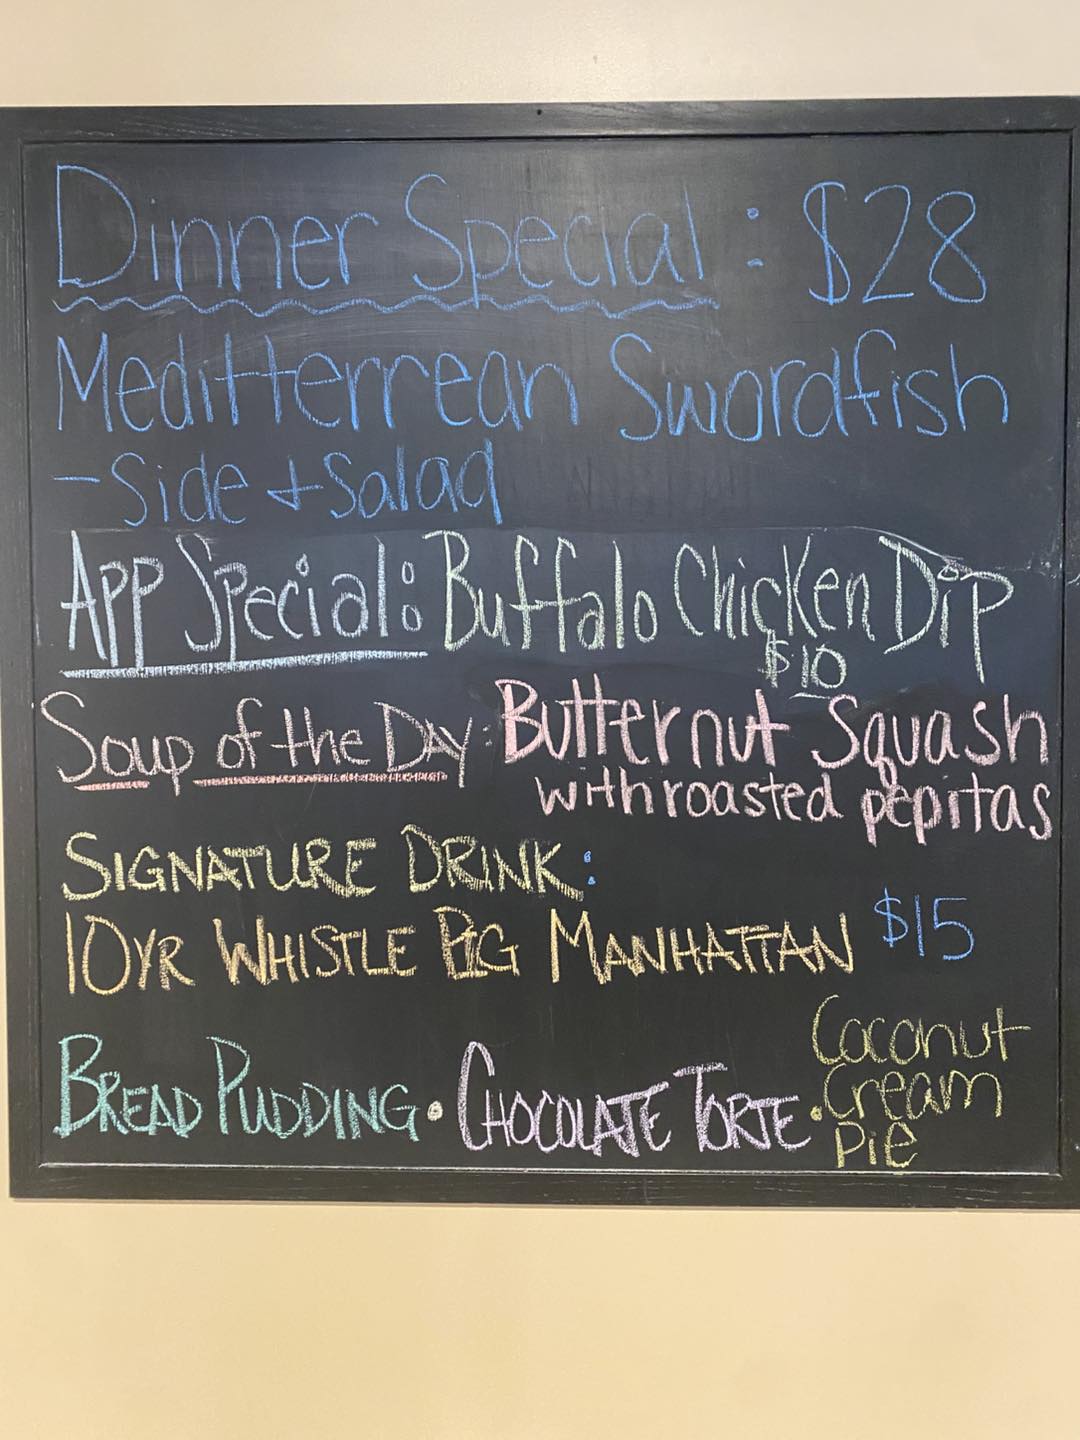 Dinner Special : $28
Meditterrean Swordfish
- Side + Salad
App Special: Buffalo Chicken Dip
$10
Soup of the Day: Butternut Squash
with roasted pepitas
SIGNATURE DRINK:
10YR WHISTLE PIG MANHATTAN $15
BREAD PUDDING • CHOCOLATE TORTE • Coconut
Cream
Pie